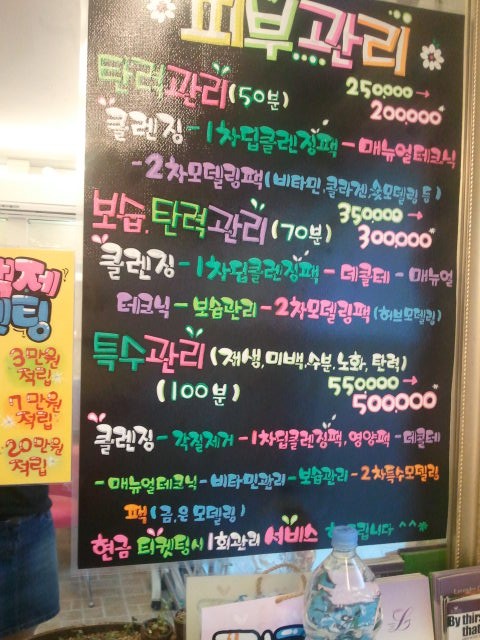 피부관리
탄력관리(50분) 250000→
200000
클렌징-1차딥클렌징팩-매뉴얼테크닉
-2차모델링팩(비타민.콜라겐.숯모델링 등)
보습.탄력관리(70분) 350000→
300000
클렌징-1차딥클렌징팩-데콜테-매뉴얼
테크닉-보습관리-2차모델링팩(허브모델링)
특수관리(재생,미백,수분,노화,탄력)
(100분) 550000→
500000
클렌징-각질제거-1차딥클렌징팩,영양팩-데콜테
-매뉴얼테크닉-비타민관리-보습관리-2차특수모델링
팩(금,은모델링)
현금 티켓팅시 1회관리 서비스 해드립니다 ^^*
3만원
적립
7만원
적립
20만원
적립
By thirs
that